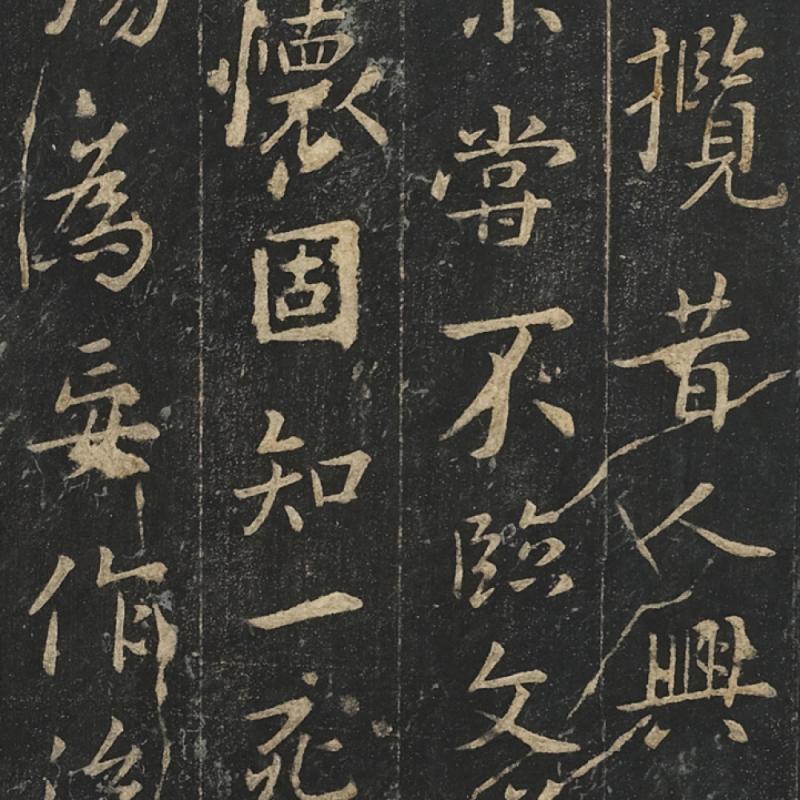 攬昔人興
嘗不臨文
懷固知一死
為妄作